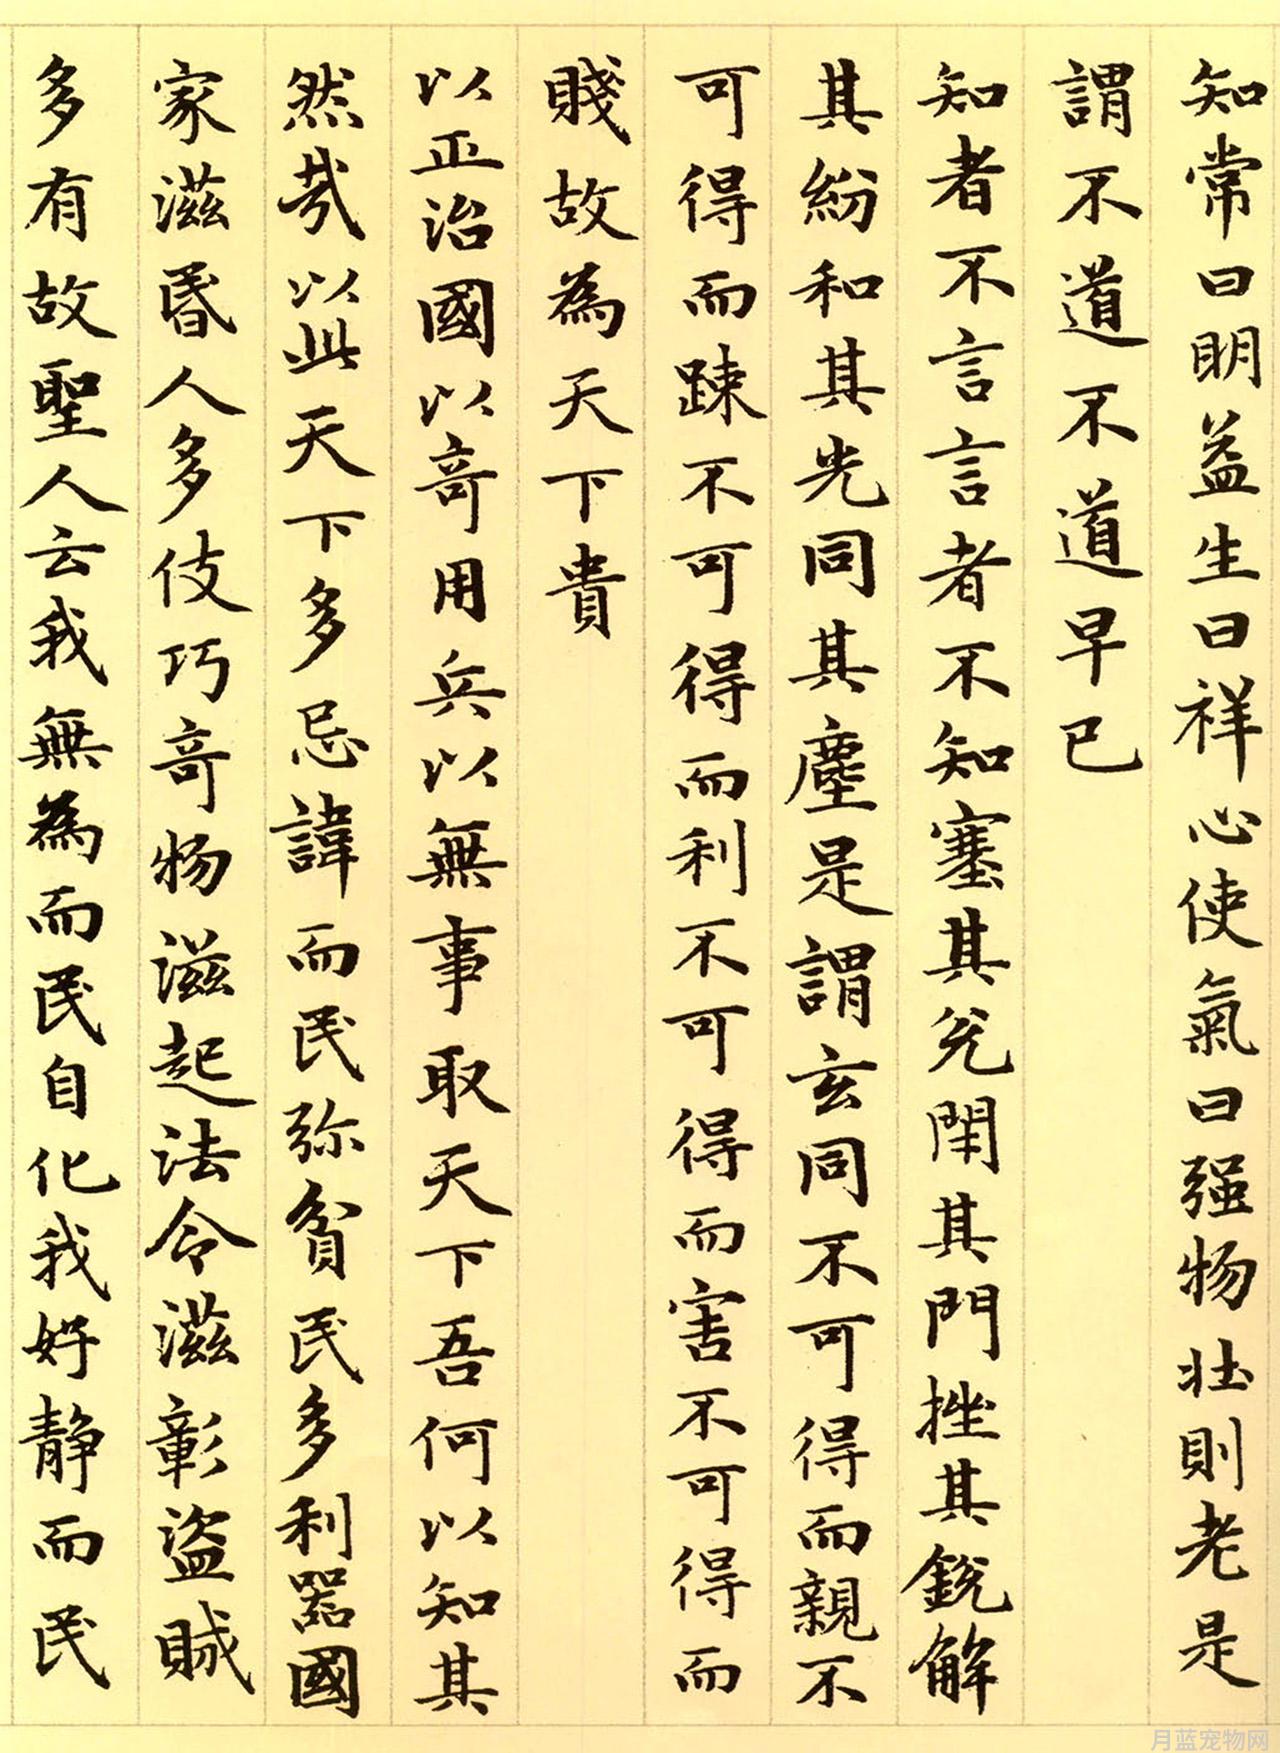 知常曰明益生曰祥心使氣曰强物壯則老是
謂不道不道早已
知者不言言者不知塞其兊閉其門挫其銳解
其紛和其光同其塵是謂玄同不可得而親不
可得而踈不可得而利不可得而害不可得而
賤故為天下貴
以正治國以竒用兵以無事取天下吾何以知其
然㢤以此天下多忌諱而民弥貧民多利器國
家滋昬人多伎巧竒物滋起法令滋彰盜賊
多有故聖人云我無為而民自化我好靜而民
月蓝宠物网